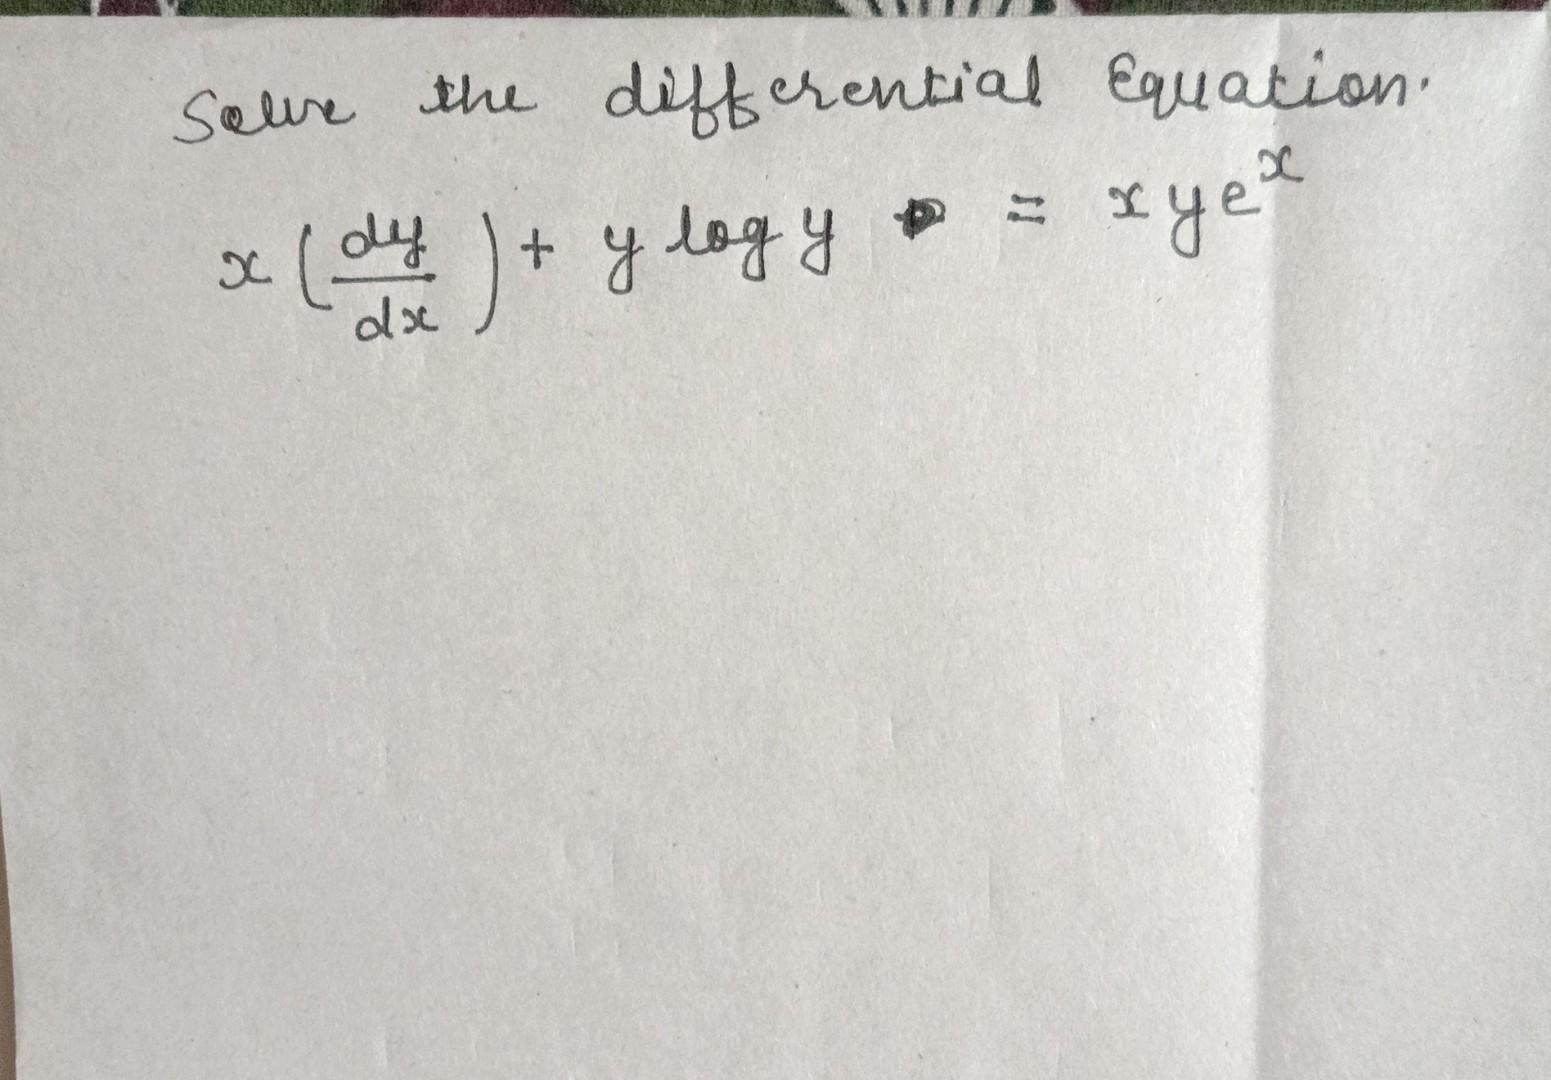 Solve the differential Equation.
x (dy/dx) + y log y = x y e^x